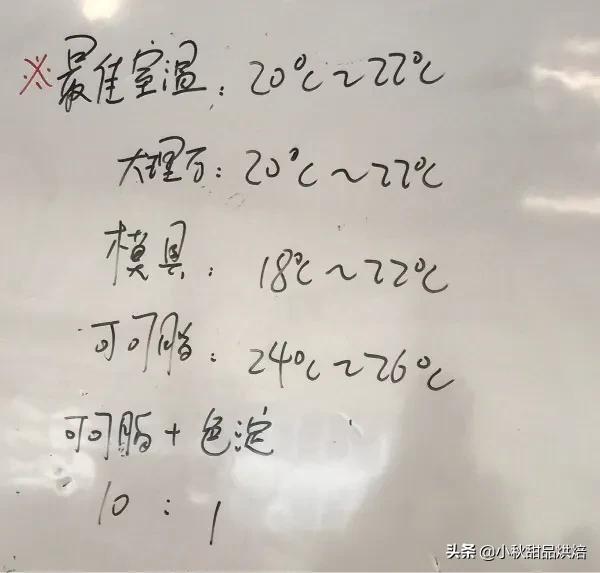 ※最佳室温：20℃~22℃
大理石：20℃~22℃
模具：18℃~22℃
可可脂：24℃~26℃
可可脂+色淀
10：1
头条@小秋甜品烘焙